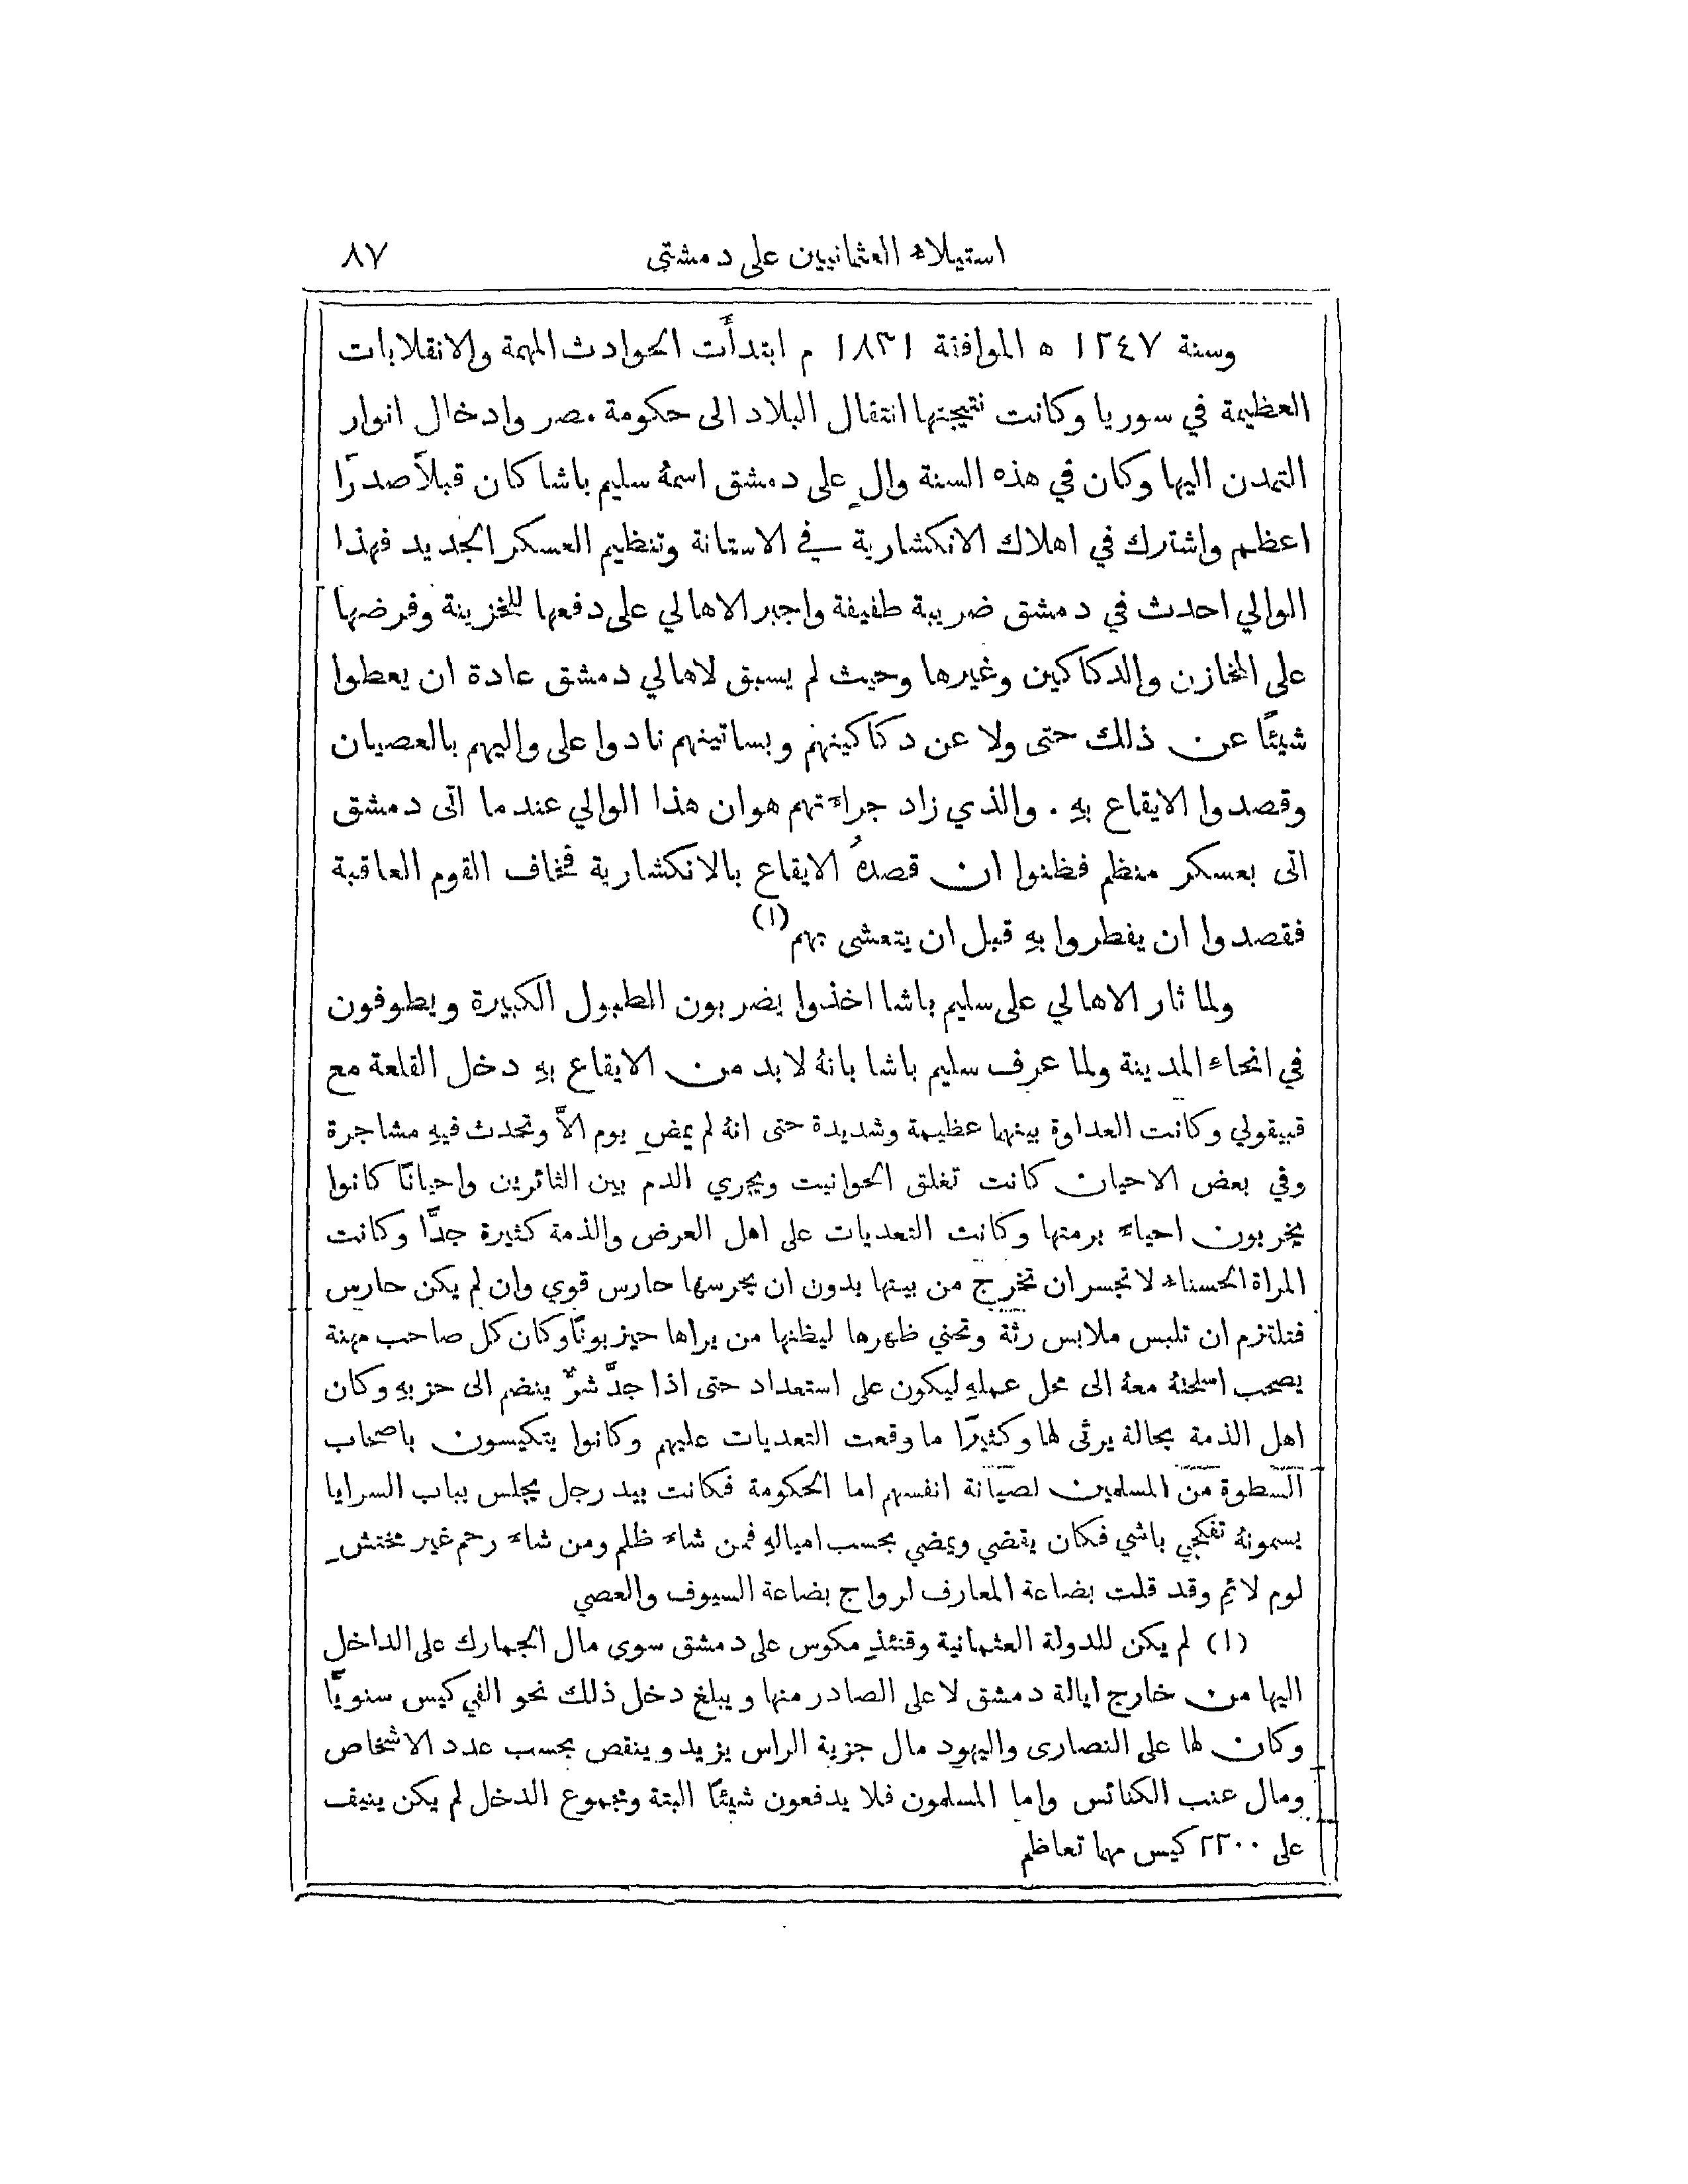 استيلاء العثمانيين على دمشق ٨٧
وسنة ١٢٤٧ ه الموافقة ١٨٣١ م ابتدأت الحوادث المهمة والانقلابات
العظيمة في سوريا وكانت نتيجتها انتقال البلاد الى حكومة مصر وادخال انوار
التمدن اليها وكان في هذه السنة والٍ على دمشق اسمهُ سليم باشا كان قبلاً صدرًا
اعظم واشترك في اهلاك الانكشارية في الاستانة وتنظيم العسكر الجديد فهذا
الوالي احدث في دمشق ضريبة طفيفة واجبر الاهالي على دفعها للخزينة وفرضها
على المخازن والدكاكين وغيرها وحيث لم يسبق لاهالي دمشق عادة ان يعطوا
شيئًا عن ذلك حتى ولا عن دكاكينهم وبساتينهم نادوا على واليهم بالعصيان
وقصدوا الايقاع بهِ . والذي زاد جراءتهم هو ان هذا الوالي عند ما اتى دمشق
اتى بعسكر منظم فظنوا ان قصدهُ الايقاع بالانكشارية فخاف القوم العاقبة
فقصدوا ان يفطروا بهِ قبل ان يتعشى بهم (١)
ولما ثار الاهالي على سليم باشا اخذوا يضربون الطبول الكبيرة ويطوفون
في انحاء المدينة ولما عرف سليم باشا بانهُ لا بد من الايقاع بهِ دخل القلعة مع
قبيقولي وكانت العداوة بينهما عظيمة وشديدة حتى انهُ لم يمضِ يوم الاَّ وتحدث فيهِ مشاجرة
وفي بعض الاحيان كانت تغلق الحوانيت ويجري الدم بين الثائرين واحيانًا كانوا
يخربون احياء برمتها وكانت التعديات على اهل العرض والذمة كثيرة جدًّا وكانت
المراة الحسناء لا تجسر ان تخرج من بيتها بدون ان يحرسها حارس قوي وان لم يكن حارس
فتلتزم ان تلبس ملابس رثة وتحني ظهرها ليظنها من يراها حيزبونًا وكان كل صاحب مهنة
يصحب اسلحتهُ معهُ الى محل عملهِ ليكون على استعداد حتى اذا جدَّ شرٌّ ينضم الى حزبهِ وكان
اهل الذمة بحالة يرثى لها وكثيرًا ما وقعت التعديات عليهم وكانوا يتكيسون باصحاب
السطوة من المسلمين لصيانة انفسهم اما الحكومة فكانت بيد رجل يجلس بباب السرايا
يسمونهُ تفكجي باشي فكان يقضي ويمضي بحسب اميالهِ فمن شاء ظلم ومن شاء رحم غير مختشِ
لوم لائمٍ وقد قلت بضاعة المعارف لرواج بضاعة السيوف والعصي
(١) لم يكن للدولة العثمانية وقتئذٍ مكوس على دمشق سوى مال الجمارك على الداخل
اليها من خارج ايالة دمشق لا على الصادر منها ويبلغ دخل ذلك نحو الفي كيس سنويًّا
وكان لها على النصارى واليهود مال جزية الراس يزيد وينقص بحسب عدد الاشخاص
ومال عنب الكنائس واما المسلمون فلا يدفعون شيئًا البتة ومجموع الدخل لم يكن ينيف
على ٢٢٠٠ كيس مهما تعاظم